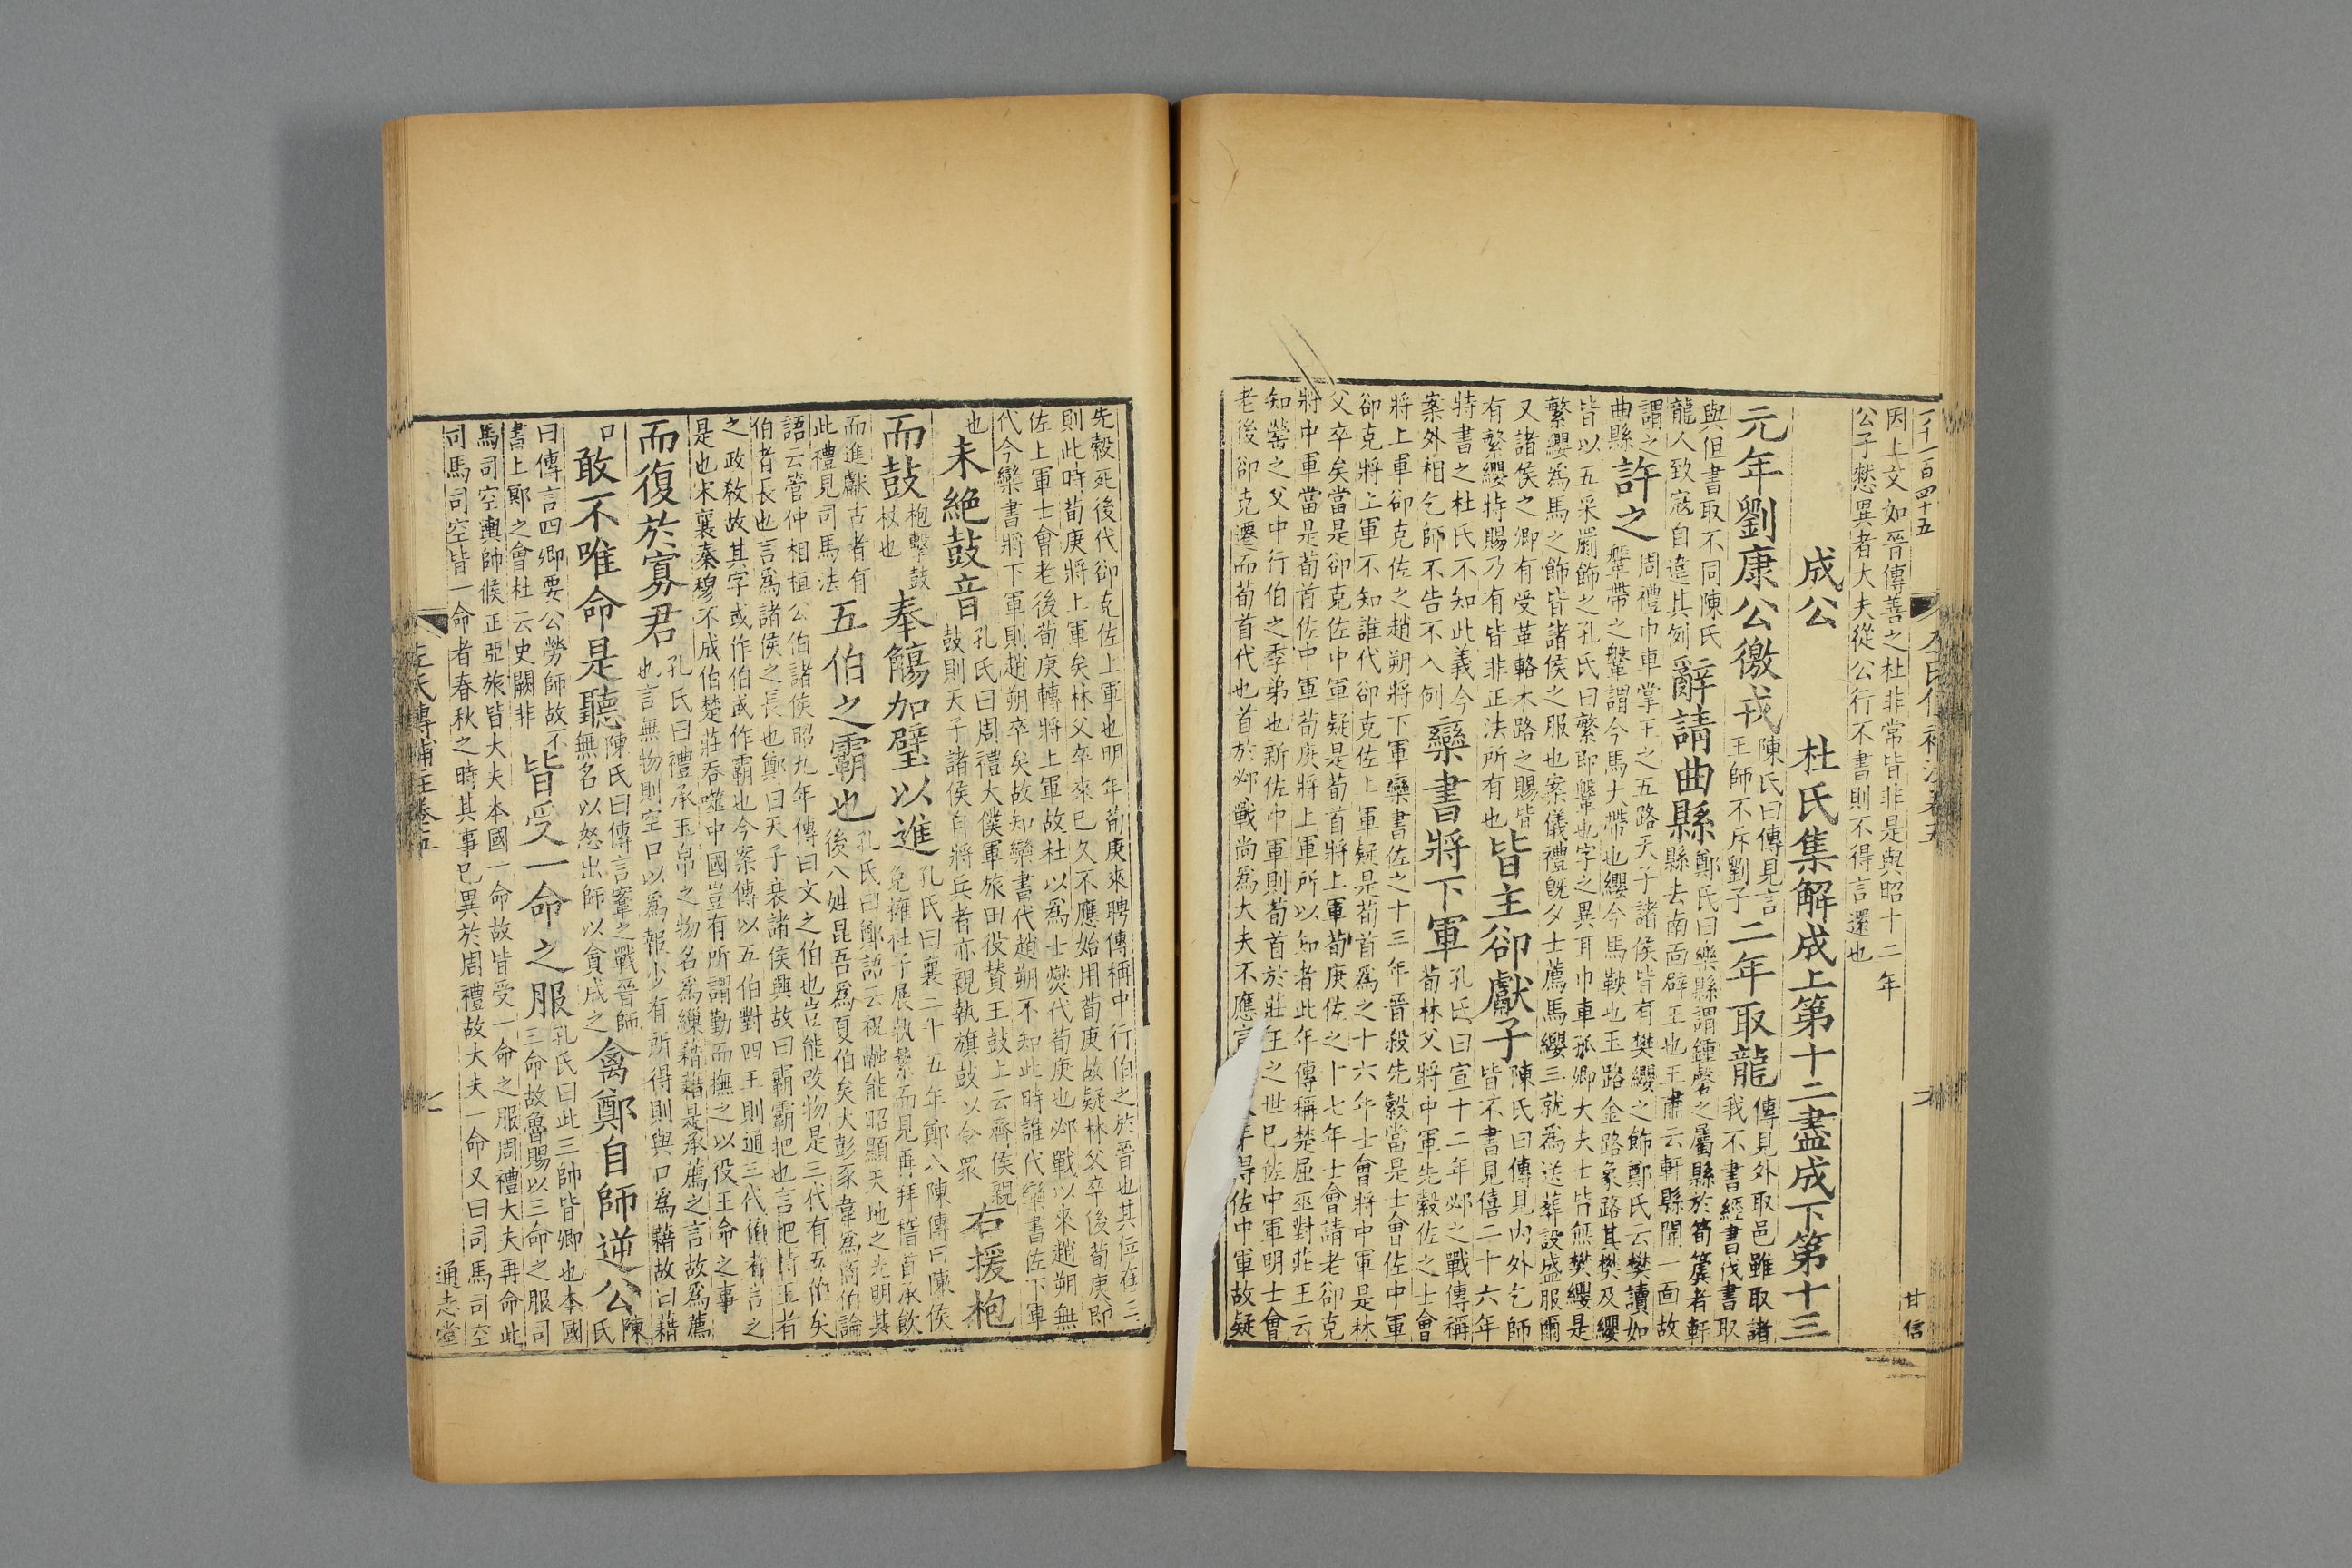 百四十五
甘信
因上文如晉傳善之杜非常皆非是與昭十二年
公子憖異者大夫從公行不書則不得言還也
成公 杜氏集解成上第十二盡成下第十三
元年劉康公徼戎陳氏曰傳見言王師不斥劉子二年取龍傳見外取邑雖取諸我不書經書伐書取
與但書取不同陳氏龍人致寇自違其例辭請曲縣鄭氏曰樂縣謂鍾磬之屬縣於筍簴者軒縣去南面辟王也王肅云軒縣闕一面故
謂之曲縣許之周禮巾車掌王之五路天子諸侯皆有樊纓之飾鄭氏云樊讀如鞶帶之鞶謂今馬大帶也纓今馬鞅也玉路金路象路其樊及纓
皆以五采罽飾之孔氏曰繁即鞶也字之異耳巾車孤卿大夫士皆無樊纓是
繁纓為馬之飾皆諸侯之服也案儀禮旣夕士薦馬纓三就為送葬設盛服爾
又諸侯之卿有受革輅木路之賜皆有繁纓特賜乃有皆非正法所有也皆主郤獻子陳氏曰傳見內外乞師皆不書見僖二十六年
特書之杜氏不知此義今案外相乞師不告不入例欒書將下軍孔氏曰宣十二年邲之戰傳稱荀林父將中軍先縠佐之士會
將上軍郤克佐之趙朔將下軍欒書佐之十三年晉殺先縠當是士會佐中軍
郤克將上軍不知誰代郤克佐上軍疑是荀首為之十六年士會將中軍是林
父卒矣當是郤克佐中軍疑是荀首將上軍荀庚佐之十七年士會請老郤克
將中軍當是荀首佐中軍荀庚將上軍所以知者此年傳稱楚屈巫對莊王云
知罃之父中行伯之季弟也新佐中軍則荀首於莊王之世已佐中軍明士會
老後郤克遷而荀首代也首於邲戰尚為大夫不應言得佐中軍故疑
先縠死後代郤克佐上軍也明年荀庚來聘傳稱中行伯之於晉也其位在三
則此時荀庚將上軍矣林父卒來已久不應始用荀庚故疑林父卒後荀庚即
佐上軍士會老後荀庚轉將上軍故杜以為士燮代荀庚也邲戰以來趙朔無
代今欒書將下軍則趙朔卒矣故知欒書代趙朔不知此時誰代欒書佐下軍
也未絶鼓音孔氏曰周禮大僕軍旅田役賛王鼓上云齊侯親鼓則天子諸侯自將兵者亦親執旗鼓以令眾右援枹
而鼓枹擊鼓杖也奉觴加璧以進孔氏曰襄二十五年鄭入陳傳曰陳侯免擁社子展執縶而見再拜稽首承飲
而進獻古者有此禮見司馬法五伯之霸也孔氏曰鄭語云祝融能昭顯天地之光明其後八姓昆吾為夏伯矣大彭豕韋為商伯論
語云管仲相桓公伯諸侯昭九年傳曰文之伯也豈能改物是三代有五伯矣
伯者長也言為諸侯之長也鄭曰天子衰諸侯興故曰霸霸把也言把持王者
之政教故其字或作伯或作霸也今案傳以五伯對四王則通三代伯者言之
是也宋襄秦穆不成伯楚莊吞噬中國豈有所謂勤而撫之以役王命之事
而復於寡君孔氏曰禮承玉帛之物名為繅藉藉是承薦之言故為薦也言無物則空口以為報少有所得則與口為藉故曰藉
口敢不唯命是聽陳氏曰傳言鞌之戰晉師無名以怒出師以貪成之禽鄭自師逆公陳氏
曰傳言四卿要公勞師故不書上鄍之會杜云史闕非皆受一命之服孔氏曰此三帥皆卿也本國三命故魯賜以三命之服司
馬司空輿師候正亞旅皆大夫本國一命故皆受一命之服周禮大夫再命此
司馬司空皆一命者春秋之時其事已異於周禮故大夫一命又曰司馬司空
左氏傳補注卷五
通志堂